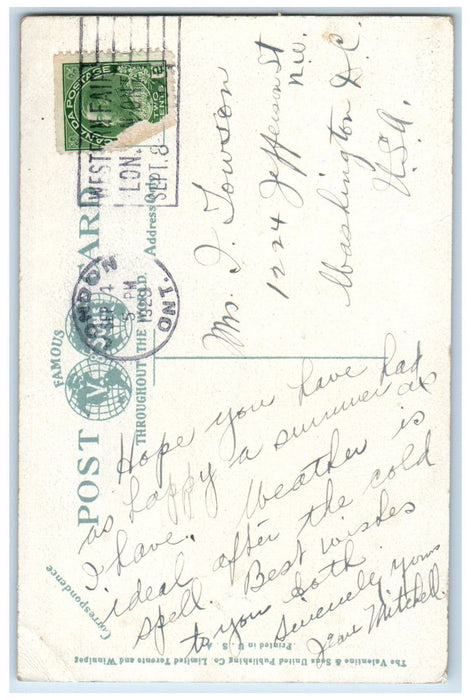 CANADA POSTAGE
TWO
CENTS
WESTERN FAIR
LONDON
SEPT. 8
LONDON
SEP 4
5 PM
1923
ONT.
POST CARD
FAMOUS
THROUGHOUT THE WORLD.
V
Correspondence
Address Only
Mrs. J. Towson
1224 Jefferson St
N.W.
Washington D.C.
U.S.A.
Hope you have had
as happy a summer as
I have. Weather is
ideal after the cold
spell. Best wishes
to you both.
Sincerely yours
Jean Mitchell.
The Valentine & Sons United Publishing Co. Limited Toronto and Winnipeg
Printed in U. S. A.